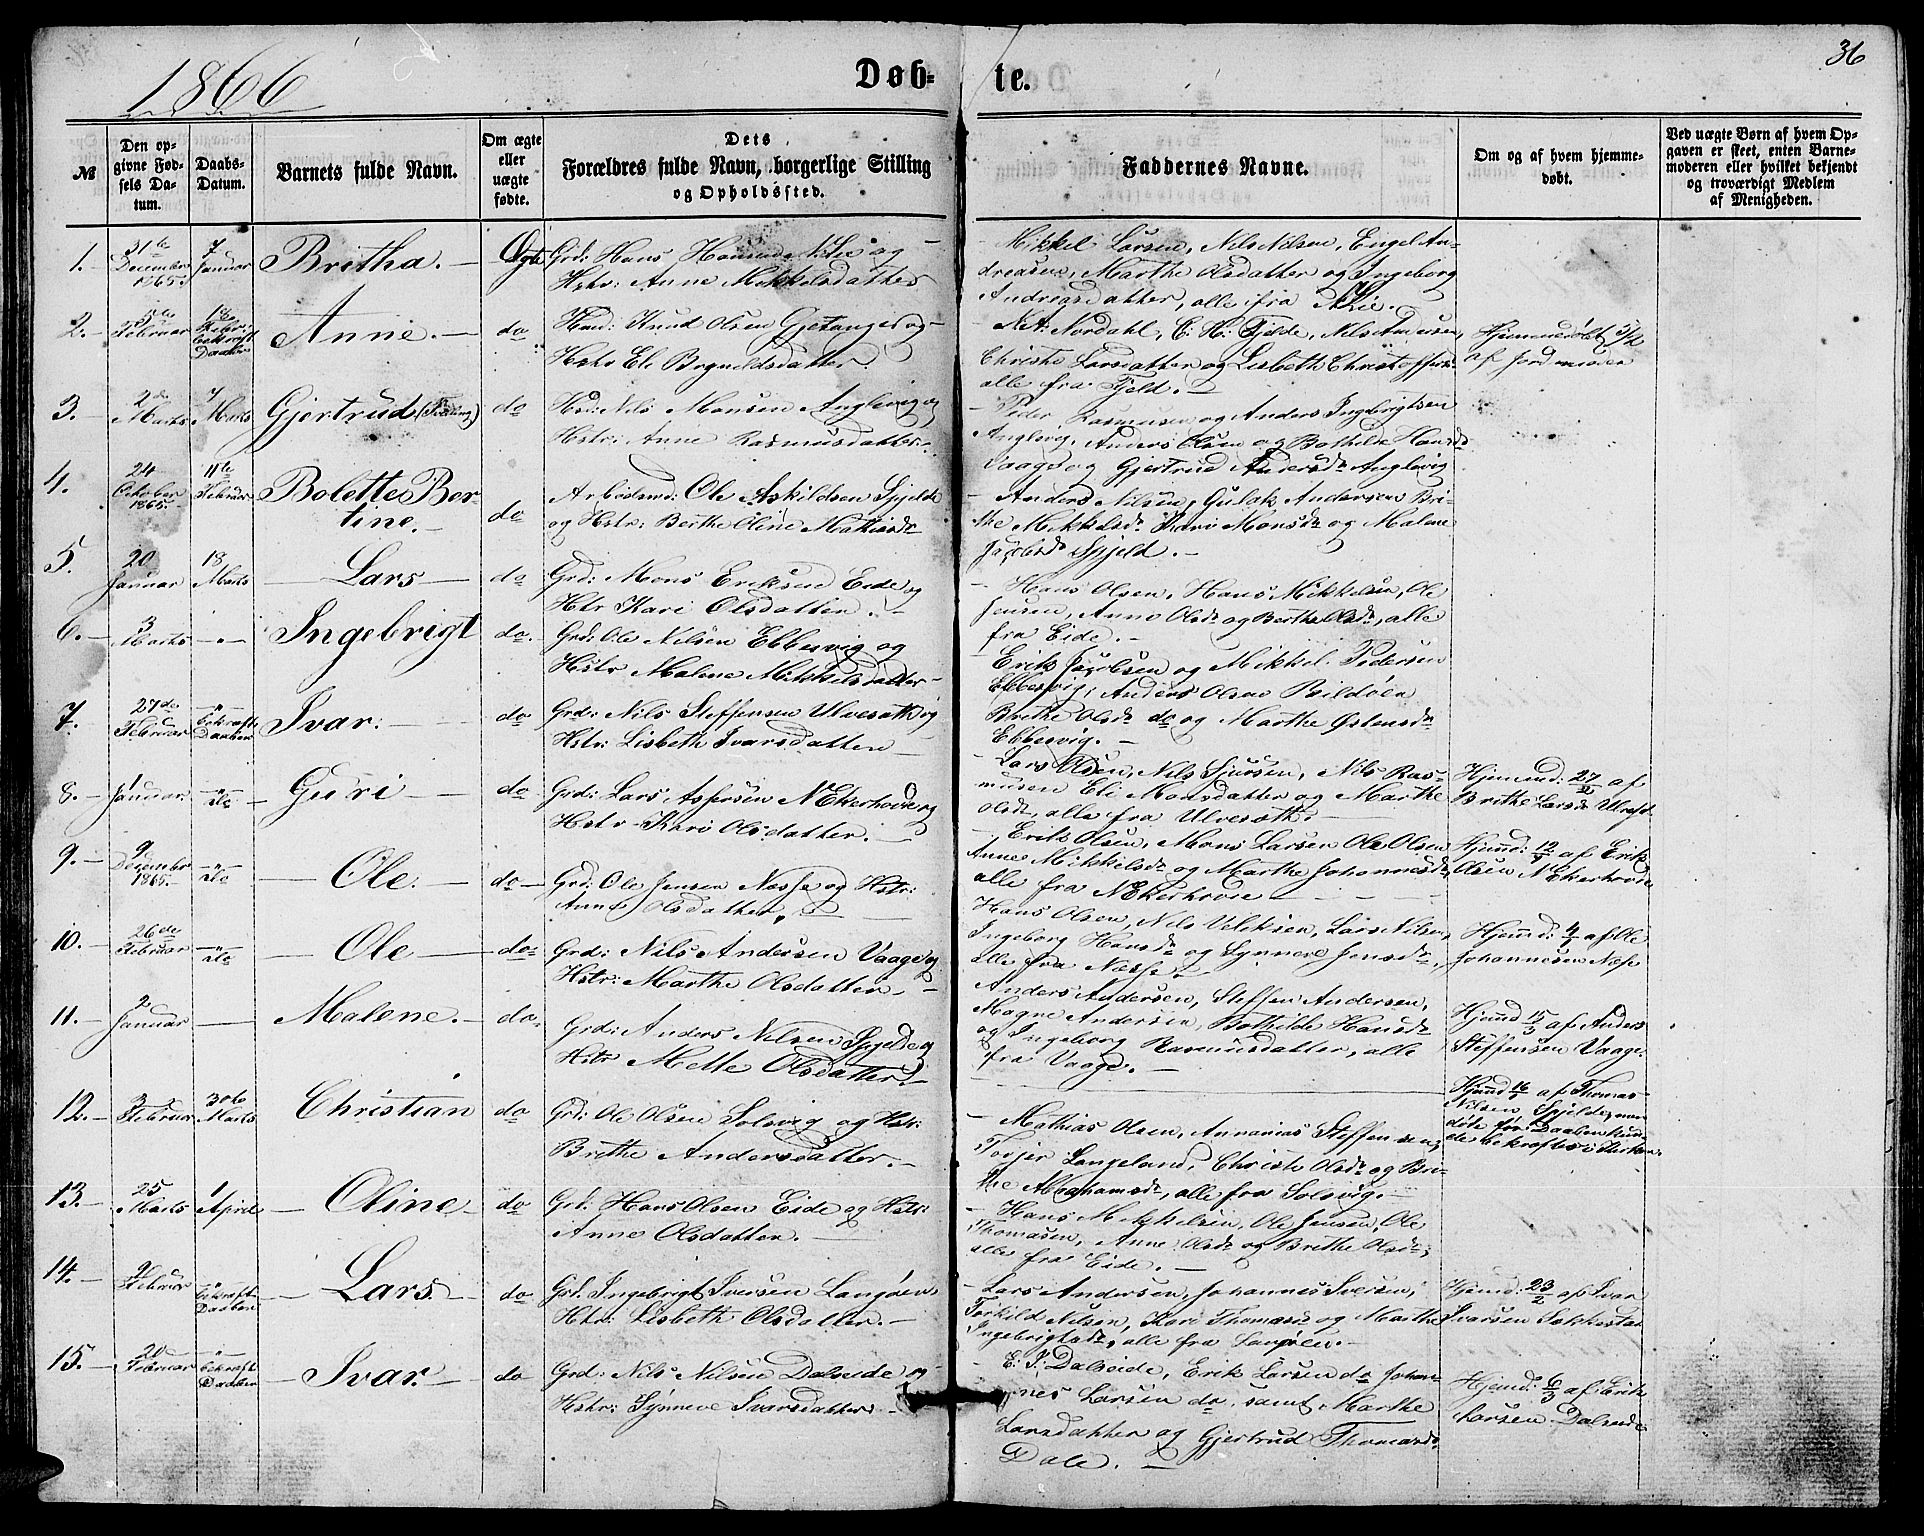 1866
Døb-
te.
36
№
Den op-
givne Fød-
sels Da-
tum.
Daabs-
Datum.
Barnets fulde Navn.
Om ægte
eller
uægte
fødte.
Dets
Forældres fulde Navn, borgerlige Stilling
og Opholdssted.
Faddernes Navne.
Om og af hvem hjemme-
døbt.
Ved uægte Børn af hvem Op-
gaven er skeet, enten Barne-
moderen eller hvilket bekjendt
og troværdigt Medlem
af Menigheden.
1.
31te
December
1865.
7
Januar
Britha.
Ægte
Grd: Hans Hansen N Lie og
Hstr: Anne Mikkelsdatter
Mikkel Larsen, Nils Nilsen, Engel An-
dreasen, Marthe Olsdatter og Ingeborg
Andreasdatter, alle fra Lie.
2.
5te
Februar
18
Febr:
bekræft
Daaben
Anne.
do
Hmd: Knud Olsen Gjetanger og
Hstr Eli Brynildsdatter
N. A. Nordahl, E. H. Fjelde, Nils Andersen,
Christi Larsdatter og Lisbeth Christoffersd
alle fra Fjeld.
Hjemmedøbt 5/2
af Jordmoder
3.
2de
Marts
7
Marts
Gjertrud (Tvilling)
do
Hsd: Nils Monsen Anglevig og
Hstr: Anne Rasmusdatter.
Peder Rasmusen og Anders Ingebrigtsen
Anglevig, Anders Olsen og Bothilde Hansdr
Vaage og Gjertrud Andersdr Anglevig
4.
24
October
1865.
11te
Februar
Bolette Ber-
tine.
do
Arbeidsmd: Ole Askildsen Spjelde
og Hstr: Berthe Oline Mathiasdr
Anders Nilsen, Gulak Andersen Bri-
the Mikkelsdr Kari Monsdr og Malene
Jacobsdr Spjeld.
5.
20
Januar
18
Marts
Lars
do
Grd: Mons Eriksen Eide og
Hstr Kari Olsdatter.
Hans Olsen, Hans Mikkelsen, Ole
Jensen, Anna Olsdr og Berthe Olsdr, alle
fra Eide.
6.
3
Marts
"
Ingebrigt
do.
Grd: Ole Nilsen Ebbesvig og
Hstr Malene Mikkelsdatter
Erik Jacobsen og Mikkel Pedersen
Ebbesvig, Anders Olsen Bildøen
Brithe Olsdr do og Marthe Østensdr
Ebbesvig.
7.
27de
Februar
"
bekræft
Daaben
Ivar.
do
Grd: Nils Steffensen Ulvesæth og
Hstr: Lisbeth Ivarsdatter
Lars Olsen, Nils Sjursen, Nils Ras-
musen Eli Monsdatter og Marthe
Olsdr, alle fra Ulvesæth.
Hjemmd: 27/2 af
Brithe Larsdr Ulvest
8.
1
Januar
"
do
Guri
do
Grd: Lars Aspersen N Ekerhovde og
Hstr Kari Olsdatter.
Erik Olsen, Mons Larsen Ole Olsen
Anne Mikkelsdr og Marthe Johannesdr,
alle fra N Ekerhovde
Hjmd: 12/1 af Erik
Olsen N Ekerhovde
9.
9
December
1865.
"
do
Ole.
do
Grd: Ole Jensen Næsse og Hstr:
Anne Olsdatter.
Hans Olsen, Nils Velliksen, Lars Nilsen,
Ingeborg Hansdr og Synneve Jensdr,
alle fra Næsse.
Hjemd: 4/1 af Ole
Johannesen Næsse
10.
26de
Februar
"
do
Ole
do
Grd: Nils Andersen Vaage og
Hstr: Marthe Olsdatter
Anders Andersen, Steffen Andersen,
Magne Andersen, Bothilde Hansdr
og Ingeborg Rasmusdatter, alle
fra Vaage.
Hjemd 15/3 af Anders
Steffensen Vaage.
11.
2
Januar
Malene.
do.
Grd: Anders Nilsen Spjelde og
Hstr Mette Olsdatter.
Hjemd 16/1 af Thomas
Nilsen Spjelde, men
døde før Daaben kun-
de bekræftes i Kirken.
12.
3
Februar
30te
Marts
Christian
do
Grd: Ole Olsen Solsvig og Hstr:
Brithe Andersdatter.
Mathias Olsen, Annanias Steffensen,
Torjer Langeland, Christi Olsdr og Bri-
the Abrahamsdr, alle fra Solsvig.
13.
25
Marts
1
April
Oline
do
Grd. Hans Olsen Eide og Hstr:
Anne Olsdatter.
Hans Mikkelsen, Ole Jensen, Ole
Thomasen, Anne Olsdr og Brithe Olsdr,
alle fra Eide.
14.
9
Februar
"
bekræft
Daaben
Lars
do
Grd. Ingebrigt Iversen Langøen,
Hstr: Lisbeth Olsdatter.
Lars Andersen, Johannes Iversen,
Torkild Nilsen, Kari Thomasdr og Marthe
Ingebrigtsdr, alle fra Langøen.
Hjemd: 23/2 af Ivar
Ivarsen Sekkestad
15.
20
Februar
"
bekræft
Daaben
Ivar.
do
Grd: Nils Nilsen Dalseide og
Hstr: Synneve Ivarsdatter
E. I. Dalseide, Erik Larsen do Johan-
nes Larsen do, samt Marthe
Larsdatter og Gjertrud Thomasdr
Dale.
Hjemd: 6/3 af Erik
Larsen Dalseide